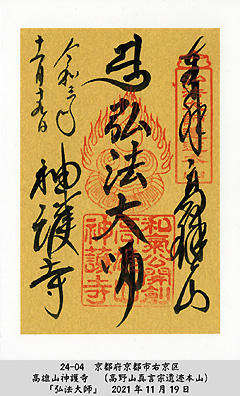 奉拝 高雄山
弘法大師
令和三年
十一月十九日
神護寺
和氣公開創
高雄山
神護寺
24-04 京都府京都市右京区
高雄山神護寺 (高野山真言宗遺迹本山)
「弘法大師」 2021年11月19日